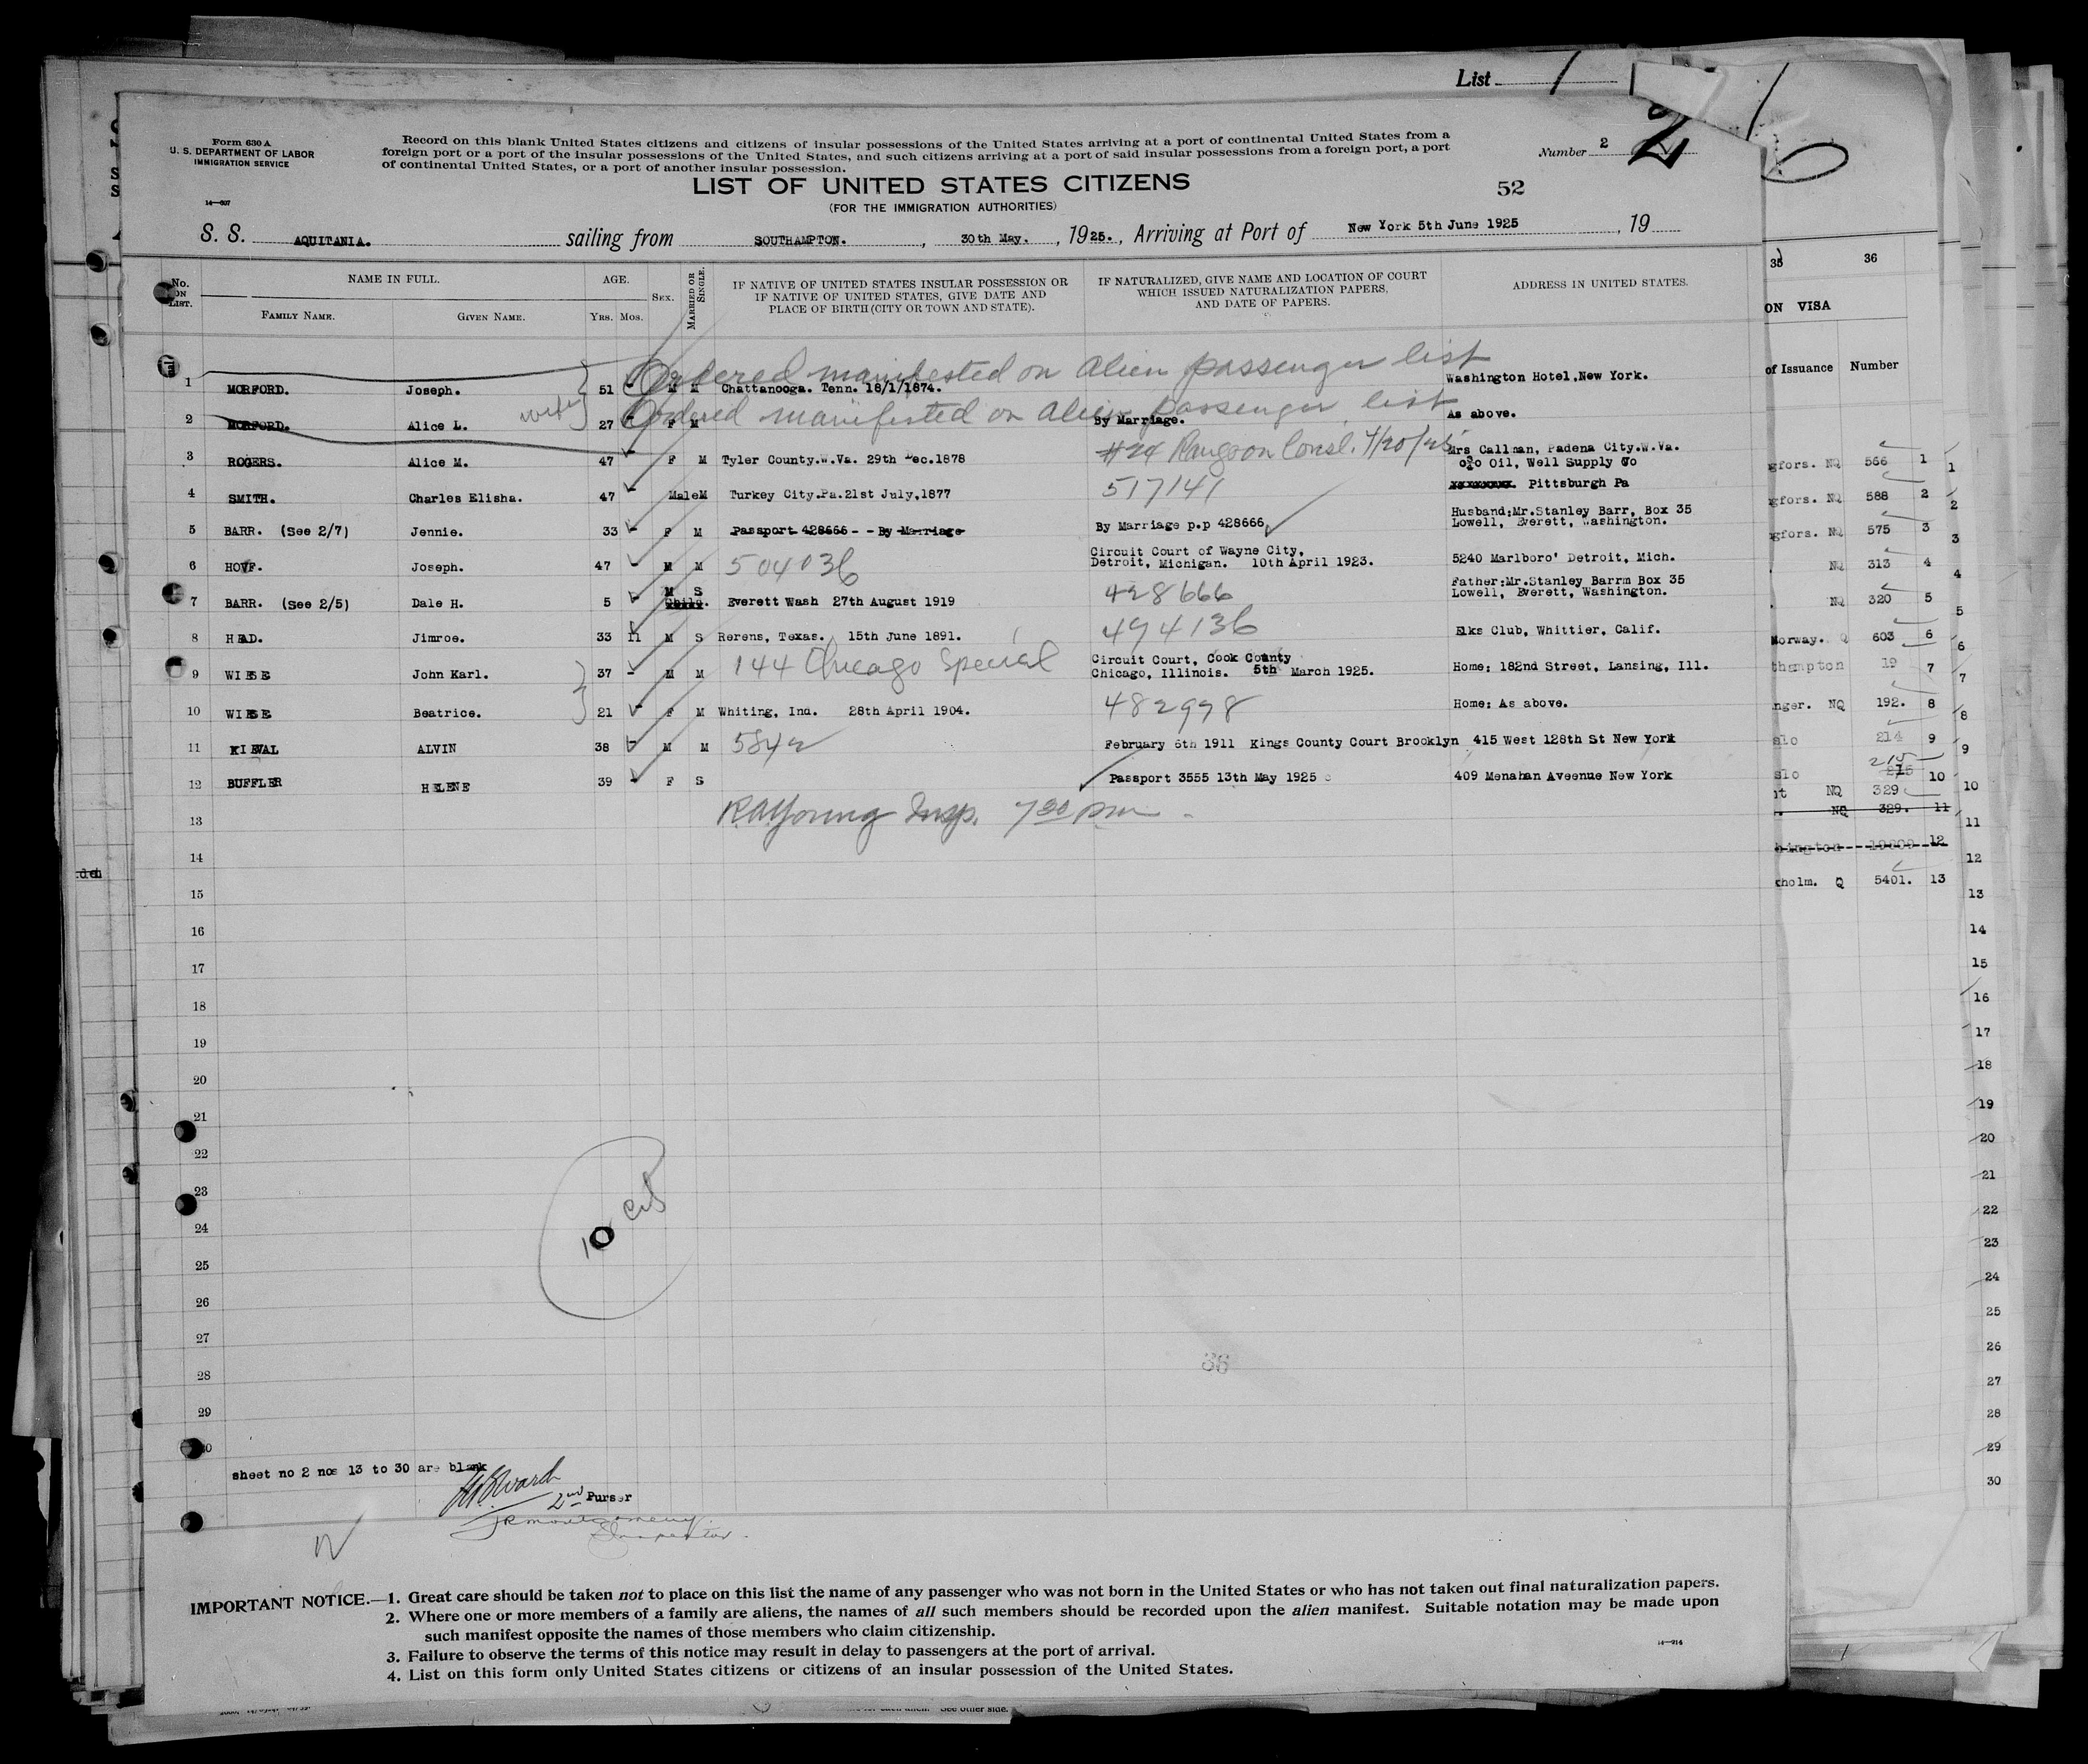 List 1
Form 630 A
U. S. DEPARTMENT OF LABOR
IMMIGRATION SERVICE
14—607
Record on this blank United States citizens and citizens of insular possessions of the United States arriving at a port of continental United States from a
foreign port or a port of the insular possessions of the United States, and such citizens arriving at a port of said insular possessions from a foreign port, a port
of continental United States, or a port of another insular possession.
Number 2 2
LIST OF UNITED STATES CITIZENS
52
(FOR THE IMMIGRATION AUTHORITIES)
S. S. AQUITANIA. sailing from SOUTHAMPTON. , 30th May. , 1925. , Arriving at Port of New York 5th June 1925 , 19
No. ON LIST. NAME IN FULL. AGE. SEX. MARRIED OR SINGLE. IF NATIVE OF UNITED STATES INSULAR POSSESSION OR IF NATIVE OF UNITED STATES, GIVE DATE AND PLACE OF BIRTH (CITY OR TOWN AND STATE). IF NATURALIZED, GIVE NAME AND LOCATION OF COURT WHICH ISSUED NATURALIZATION PAPERS, AND DATE OF PAPERS. ADDRESS IN UNITED STATES.
FAMILY NAME. GIVEN NAME. YRS. MOS.
Ordered manifested on alien passenger list
1 MORFORD. Joseph. 51 - M M Chattanooga. Tenn. 18/1/1874. Washington Hotel,New York.
wife Ordered manifested on alien passenger list
2 MORFORD. Alice L. 27 - F M By Marriage. As above.
3 ROGERS. Alice M. 47 F M Tyler County.W.Va. 29th Dec.1878 #24 Rangoon Consl. 4/20/25 Mrs Callman, Padena City.W.Va.
c/o Oil, Well Supply Co
4 SMITH. Charles Elisha. 47 - Male M Turkey City.Pa.21st July,1877 517141 Pittsburgh Pa
5 BARR. (See 2/7) Jennie. 33 - F M Passport 428666 - - By Marriage By Marriage p.p 428666 Husband:Mr.Stanley Barr, Box 35
Lowell, Everett, Washington.
6 HOVF. Joseph. 47 - M M 504036 Circuit Court of Wayne City,
Detroit, Michigan. 10th April 1923. 5240 Marlboro' Detroit, Mich.
7 BARR. (See 2/5) Dale H. 5 - M S Child. Everett Wash 27th August 1919 428666 Father:Mr.Stanley Barrm Box 35
Lowell, Everett, Washington.
8 HEAD. Jimroe. 33 11 M S Rerens, Texas. 15th June 1891. 494136 Elks Club, Whittier, Calif.
9 WIESE John Karl. 37 - M M 144 Chicago Special Circuit Court, Cook County
Chicago, Illinois. 5th March 1925. Home: 182nd Street, Lansing, Ill.
10 WIESE Beatrice. 21 - F M Whiting, Ind. 28th April 1904. 482998 Home: As above.
11 KIEVAL ALVIN 38 - M M 5842 February 6th 1911 Kings County Court Brooklyn 415 West 128th St New York
12 BUFFLER HELENE 39 - F S Passport 3555 13th May 1925 409 Menahan Aveenue New York
13 RAYoung Insp. 7 30 pm
14
15
16
17
18
19
20
21
22
23
24
25
26
27
28
29
10 cit
36
sheet no 2 nos 13 to 30 are blank
2nd Purser
JRMontgomery
Inspector
IMPORTANT NOTICE.—1. Great care should be taken not to place on this list the name of any passenger who was not born in the United States or who has not taken out final naturalization papers.
2. Where one or more members of a family are aliens, the names of all such members should be recorded upon the alien manifest. Suitable notation may be made upon
such manifest opposite the names of those members who claim citizenship.
3. Failure to observe the terms of this notice may result in delay to passengers at the port of arrival.
4. List on this form only United States citizens or citizens of an insular possession of the United States.
14—914
35 36
ON VISA
of Issuance Number
gfors. NQ 566 1
gfors. NQ 588 2
gfors. NQ 575 3
NQ 313 4
NQ 320 5
Norway. Q 603 6
thampton 19 7
nger. NQ 192. 8
slo 214 9
slo 215 10
nt NQ 329
NQ 329. 11
hington 12
kholm. Q 5401. 13
1
2
3
4
5
6
7
8
9
10
11
12
13
14
15
16
17
18
19
20
21
22
23
24
25
26
27
28
29
30
See other side.